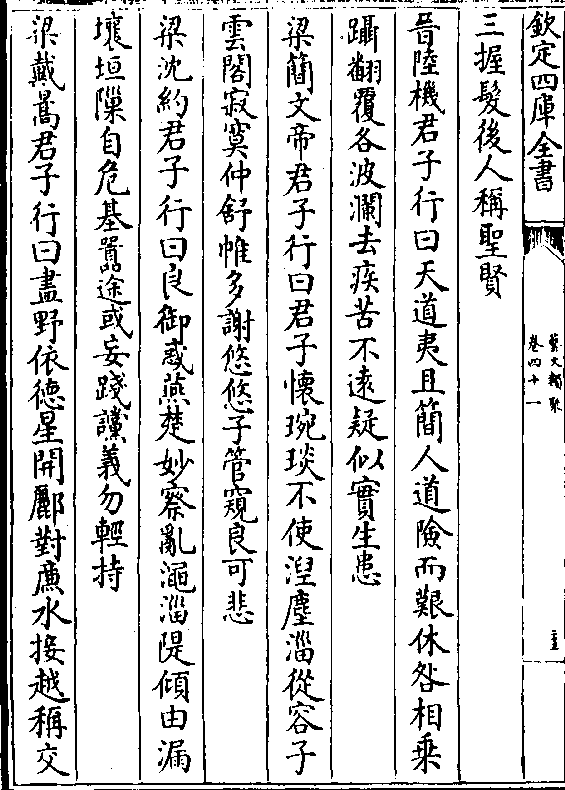 欽定四庫全書
藝文類聚
卷四十一
三握髮後人稱聖賢
晉陸機君子行曰天道夷且簡人道險而艱休咎相乗
躡翻覆各波瀾去疾苦不逺疑似實生患
梁簡文帝君子行曰君子懷琬琰不使湼塵淄從容子
雲閣寂寞仲舒帷多謝悠悠子管窺良可悲
梁沈約君子行曰良御惑燕楚妙察亂澠淄隄傾由漏
壤垣隟自危基囂途或妄踐讜義勿輕持
梁戴暠君子行曰畫野依德星開酈對亷水接越稱交